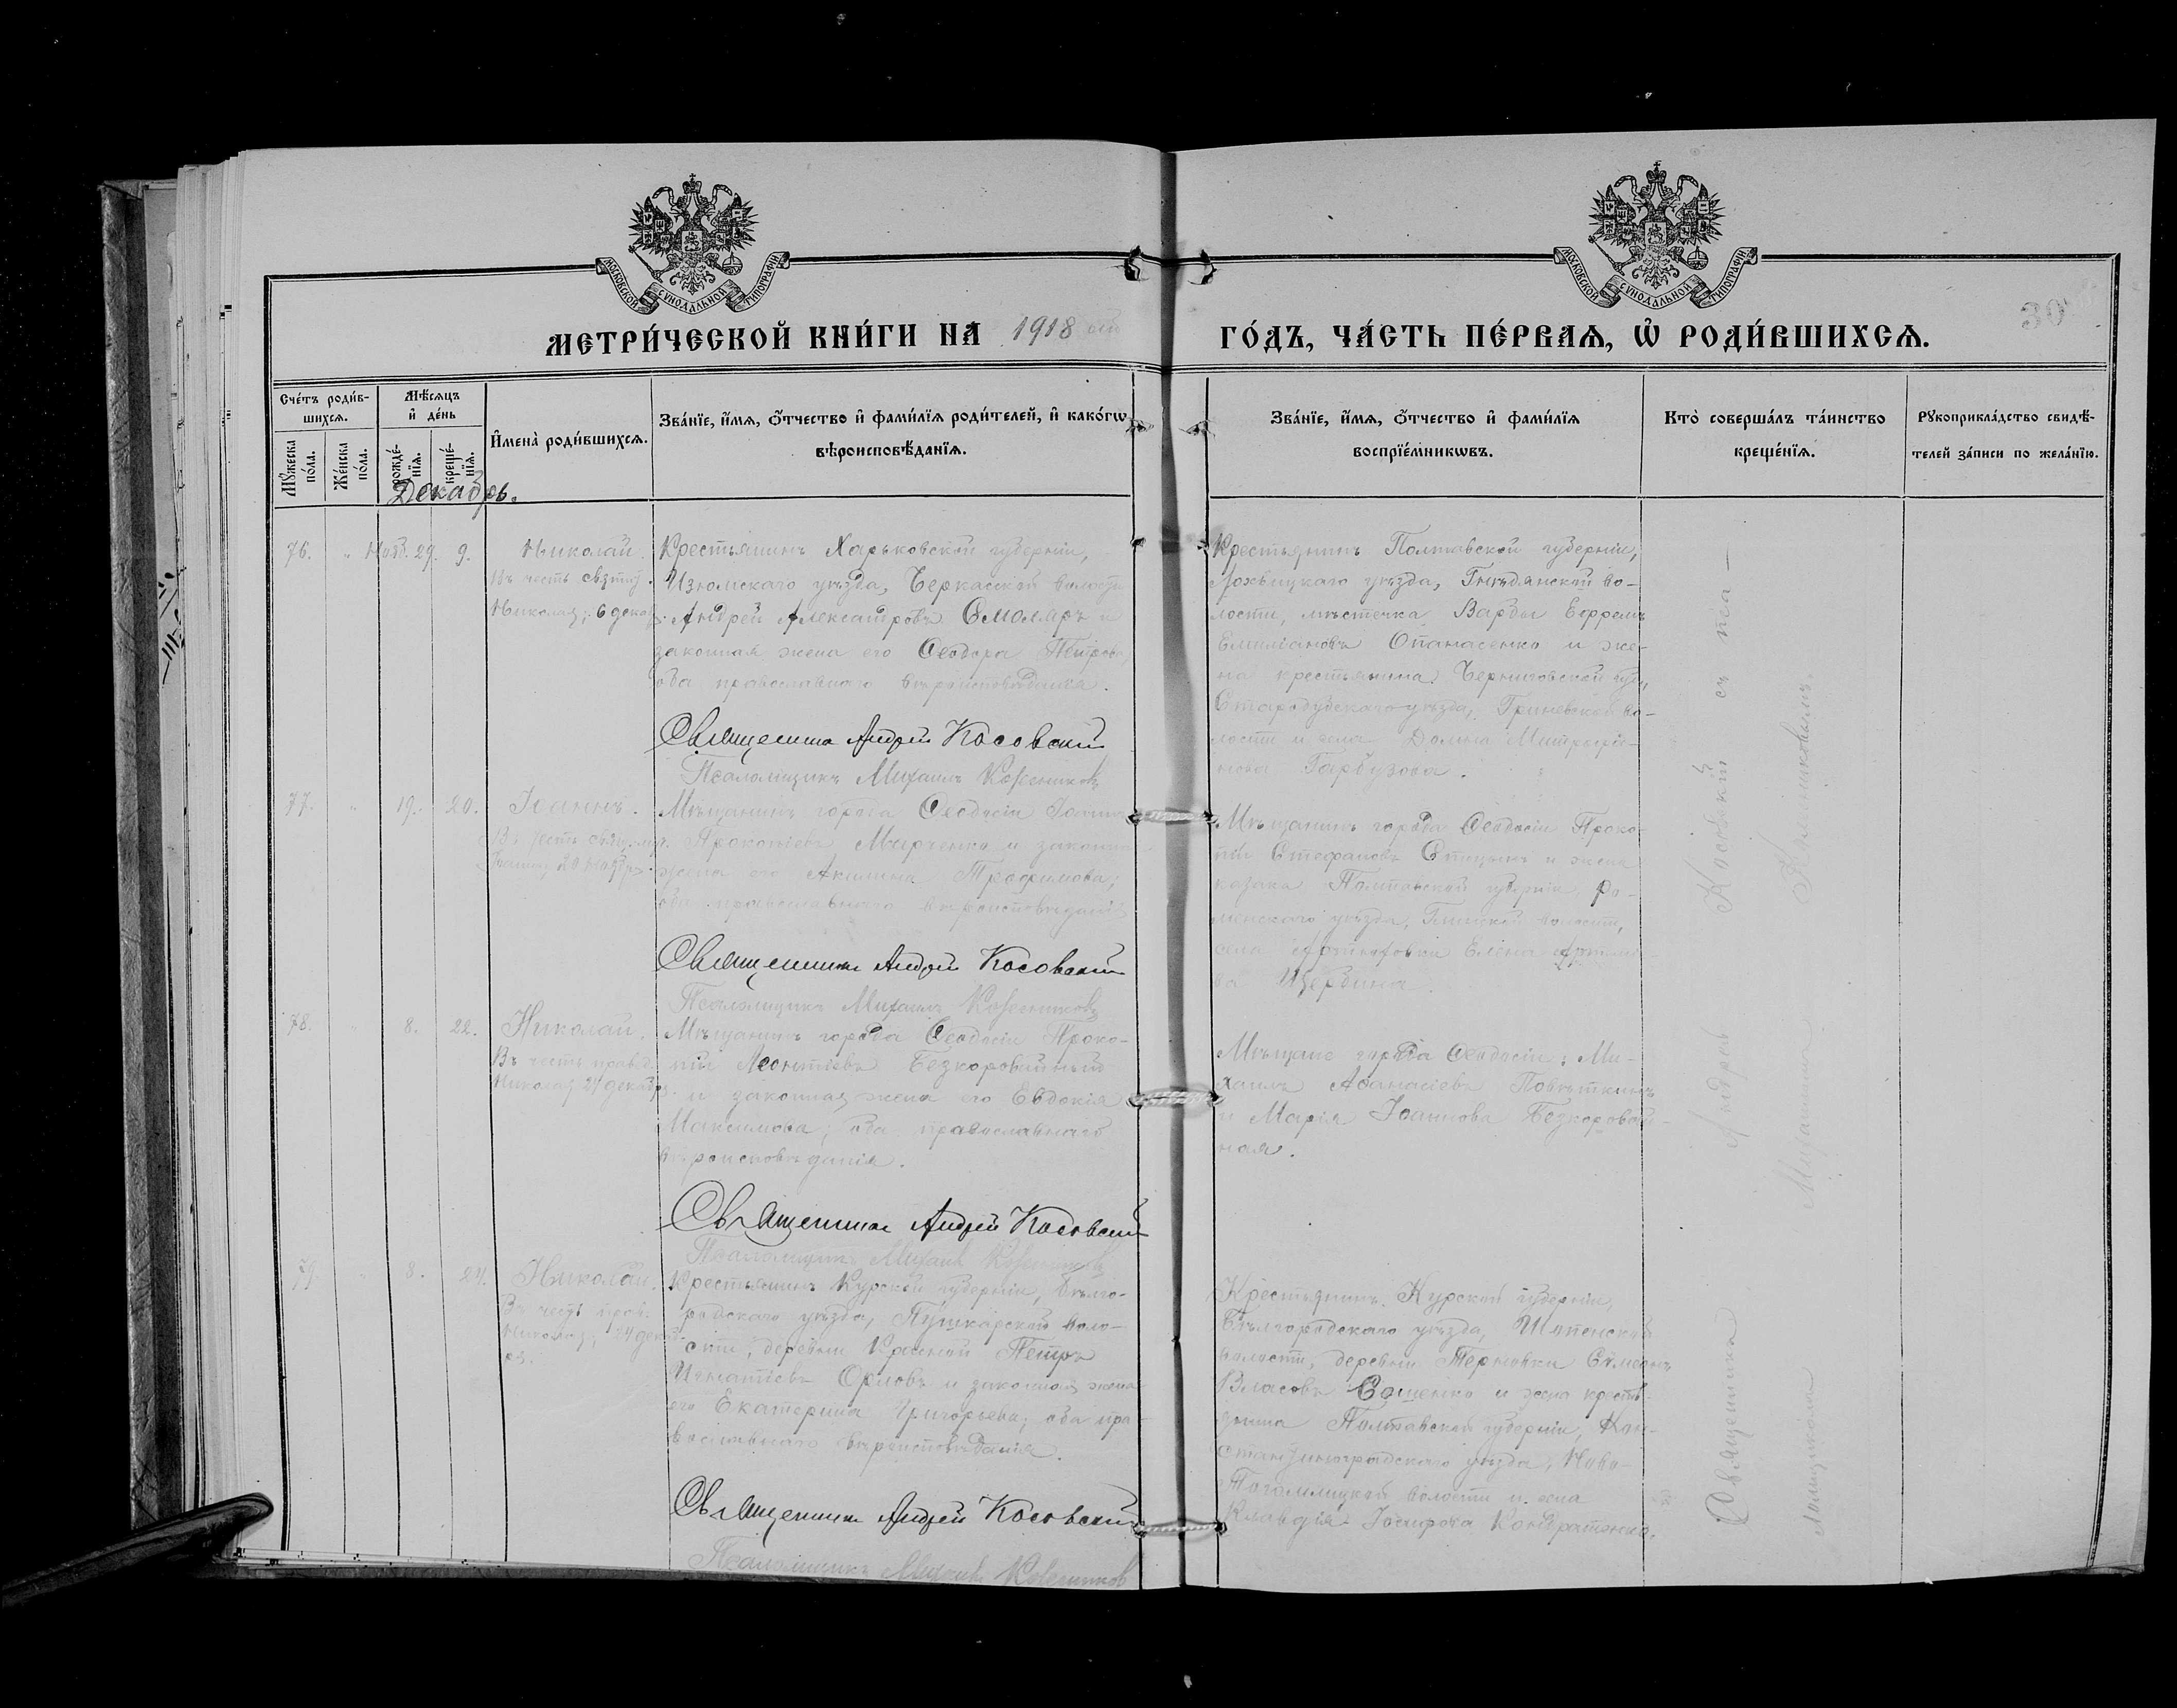 МОСКОВСКОЙ СУНОДАЛЬНОЙ ТИПОГРАФІИ
МОСКОВСКОЙ СУНОДАЛЬНОЙ ТИПОГРАФІИ
30
МЕТРИ́ЧЕСКОЙ КНИ́ГИ НА 1918
ГО́ДЪ, ЧА́СТЬ ПЕ́РВАѦ, Ѡ҆ РОДИ́ВШИХСѦ.
Сче́тъ роди́в-
шихсѧ.
Мꙋ́жеска по́ла.
Же́нска по́ла.
Мѣ́сѧцъ
и҆ де́нь
рожде́-
нїѧ.
креще́-
нїѧ.
И҆мена̀ роди́вшихсѧ.
Зва́нїе, и҆́мѧ, ѻ҆́тчество и҆ фами́лїѧ роди́телей, и҆ како́гѡ
вѣроисповѣ́данїѧ.
Зва́нїе, и҆́мѧ, ѻ҆́тчество и҆ фами́лїѧ
воспрїе́мникѡвъ.
Кто̀ соверша́лъ та́инство
креще́нїѧ.
Рꙋкоприкла́дство свидѣ́-
телей за́писи по жела́нїю.
Декабрь.
76. " Нояб. 29. 9. Николай.
Въ честь святит.
Николая; 6 декаб.
Крестьянинъ Харьковской губерніи,
Изюмскаго уѣзда, Черкасской волости
Андрей Александровъ Смоляръ и
законная жена его Ѳеодора Петрова,
оба православнаго вѣроисповѣданія.
Священникъ Андрей Косовскій
Псаломщикъ Михаилъ
Крестьянинъ Полтавской губерніи,
Лохвицкаго уѣзда, Гнѣдинской во-
лости, мѣстечка Варвы Ефремъ
Емиліановъ Опанасенко и же-
на крестьянина Черниговской губ.,
Стародубскаго уѣзда, Гриневской во-
лости и села Домна Митрофа-
нова Гарбузова.
77. " 19. 20. Іоаннъ.
Въ честь
Іоанна; 20 ноября.
Мѣщанинъ города Ѳеодосіи Іоаннъ
Прокопіевъ Марченко и законная
жена его Акилина Трофимова;
оба православнаго вѣроисповѣданія
Священникъ Андрей Косовскій
Псаломщикъ Михаилъ
Мѣщанинъ города Ѳеодосіи Проко-
пій Стефановъ и жена
казака Полтавской губерніи, Ро-
менскаго уѣзда, волости,
села Елена
ва Щербина.
78. " 8. 22. Николай.
Въ честь правед.
Николая 24 декабря.
Мѣщанинъ города Ѳеодосіи Проко-
пій Леонтіевъ Безкоровайный
и законная жена его Евдокія
Максимова; оба православнаго
вѣроисповѣданія.
Священникъ Андрей Косовскій
Псаломщикъ Михаилъ
Мѣщане города Ѳеодосіи: Ми-
хаилъ Аѳанасіевъ Повѣткинъ
и Марія Іоаннова Безкоровай-
ная.
79. " 8. 24. Николай.
Въ честь прав.
Николая; 24 декаб-
ря.
Крестьянинъ Курской губерніи, Бѣлго-
родскаго уѣзда, Пушкарской воло-
сти, деревни Красной Петръ
Игнатіевъ Орловъ и законная жена
его Екатерина Григорьева; оба пра-
вославнаго вѣроисповѣданія.
Священникъ Андрей Косовскій
Псаломщикъ Михаилъ
Крестьянинъ Курской губерніи,
Бѣлгородскаго уѣзда,
волости, деревни Терновки Симеонъ
Власовъ и жена кресть-
янина Полтавской губерніи, Кон-
стантиноградскаго уѣзда, Ново-
волости и села
Клавдія Кондратенко.
Священникъ Андрей Косовскій съ пса-
ломщикомъ Михаиломъ